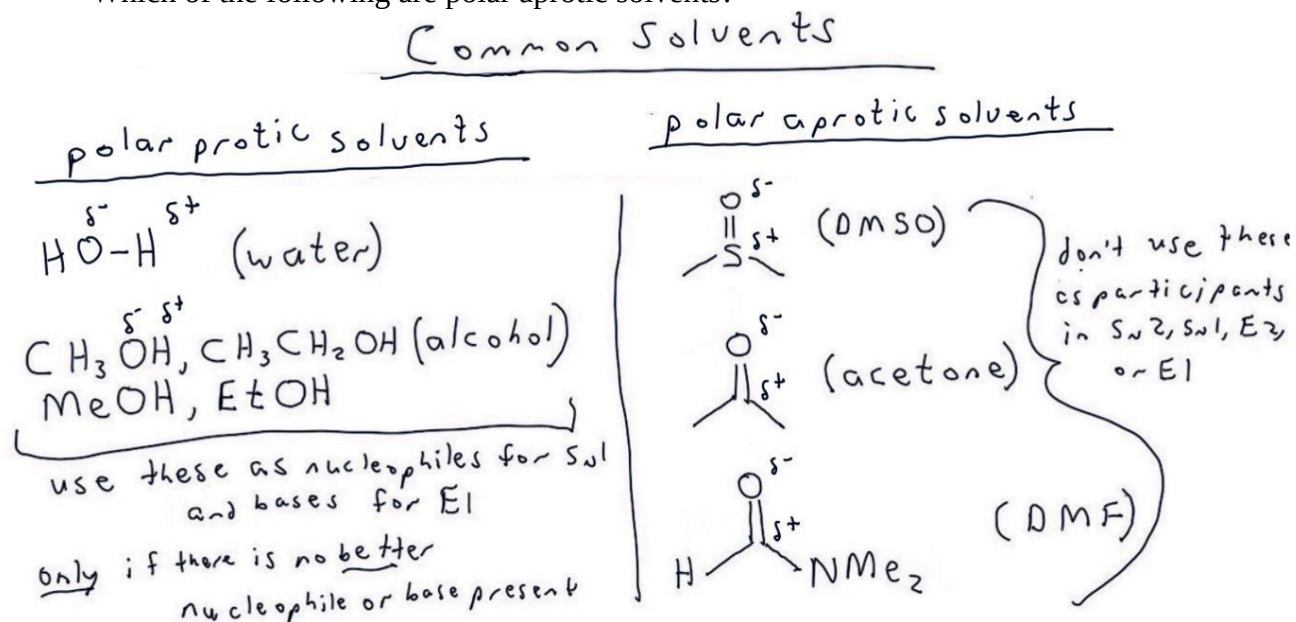 Which of the following are polar aprotic solvents?
Common Solvents
polar protic solvents
δ- δ+
HO-H (water)
δ- δ+
CH3OH, CH3CH2OH (alcohol)
MeOH, EtOH
use these as nucleophiles for SN1
and bases for E1
only if there is no better
nucleophile or base present
polar aprotic solvents
O δ-
S δ+ (DMSO)
O δ-
δ+ (acetone)
O δ-
δ+ (DMF)
H NMe2
don't use these
as participants
in SN2, SN1, E2,
or E1